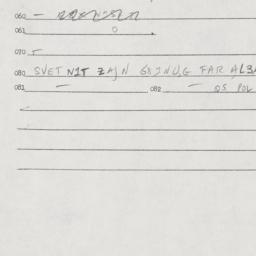 060 —
061 0
070
080 SVET NIT ZAJN GEJNUG FAR ALBA
081 — 082 — QS POL